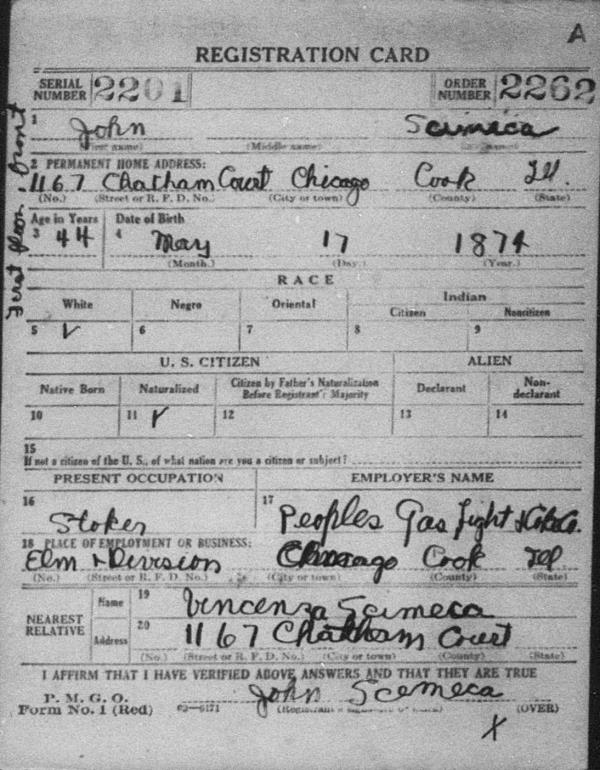 A
REGISTRATION CARD
SERIAL NUMBER 2201 ORDER NUMBER 2262
1 John Scimeca
(First name) (Middle name)
2 PERMANENT HOME ADDRESS:
1167 Chatham Court Chicago Cook Ill.
(No.) (Street or R. F. D. No.) (City or town) (County) (State)
First floor, front
Age in Years Date of Birth
3 44 4 May 17 1874
(Month.) (Day.) (Year.)
RACE
White Negro Oriental Indian
Citizen Noncitizen
5 ✓ 6 7 8 9
U. S. CITIZEN ALIEN
Native Born Naturalized Citizen by Father's Naturalization Before Registrant's Majority Declarant Non-declarant
10 11 ✓ 12 13 14
15
If not a citizen of the U. S., of what nation are you a citizen or subject?
PRESENT OCCUPATION EMPLOYER'S NAME
16 Stoker 17 Peoples Gas Light & Coke Co.
18 PLACE OF EMPLOYMENT OR BUSINESS:
Elm & Division Chicago Cook Ill
(No.) (Street or R. F. D. No.) (City or town) (County) (State)
NEAREST RELATIVE Name 19 Vincenza Scimeca
Address 20 1167 Chatham Court
(No.) (Street or R. F. D. No.) (City or town) (County) (State)
I AFFIRM THAT I HAVE VERIFIED ABOVE ANSWERS AND THAT THEY ARE TRUE
P. M. G. O.
Form No. 1 (Red) 03—6171 John Scemeca
(Registrant's signature or mark) (OVER)
X